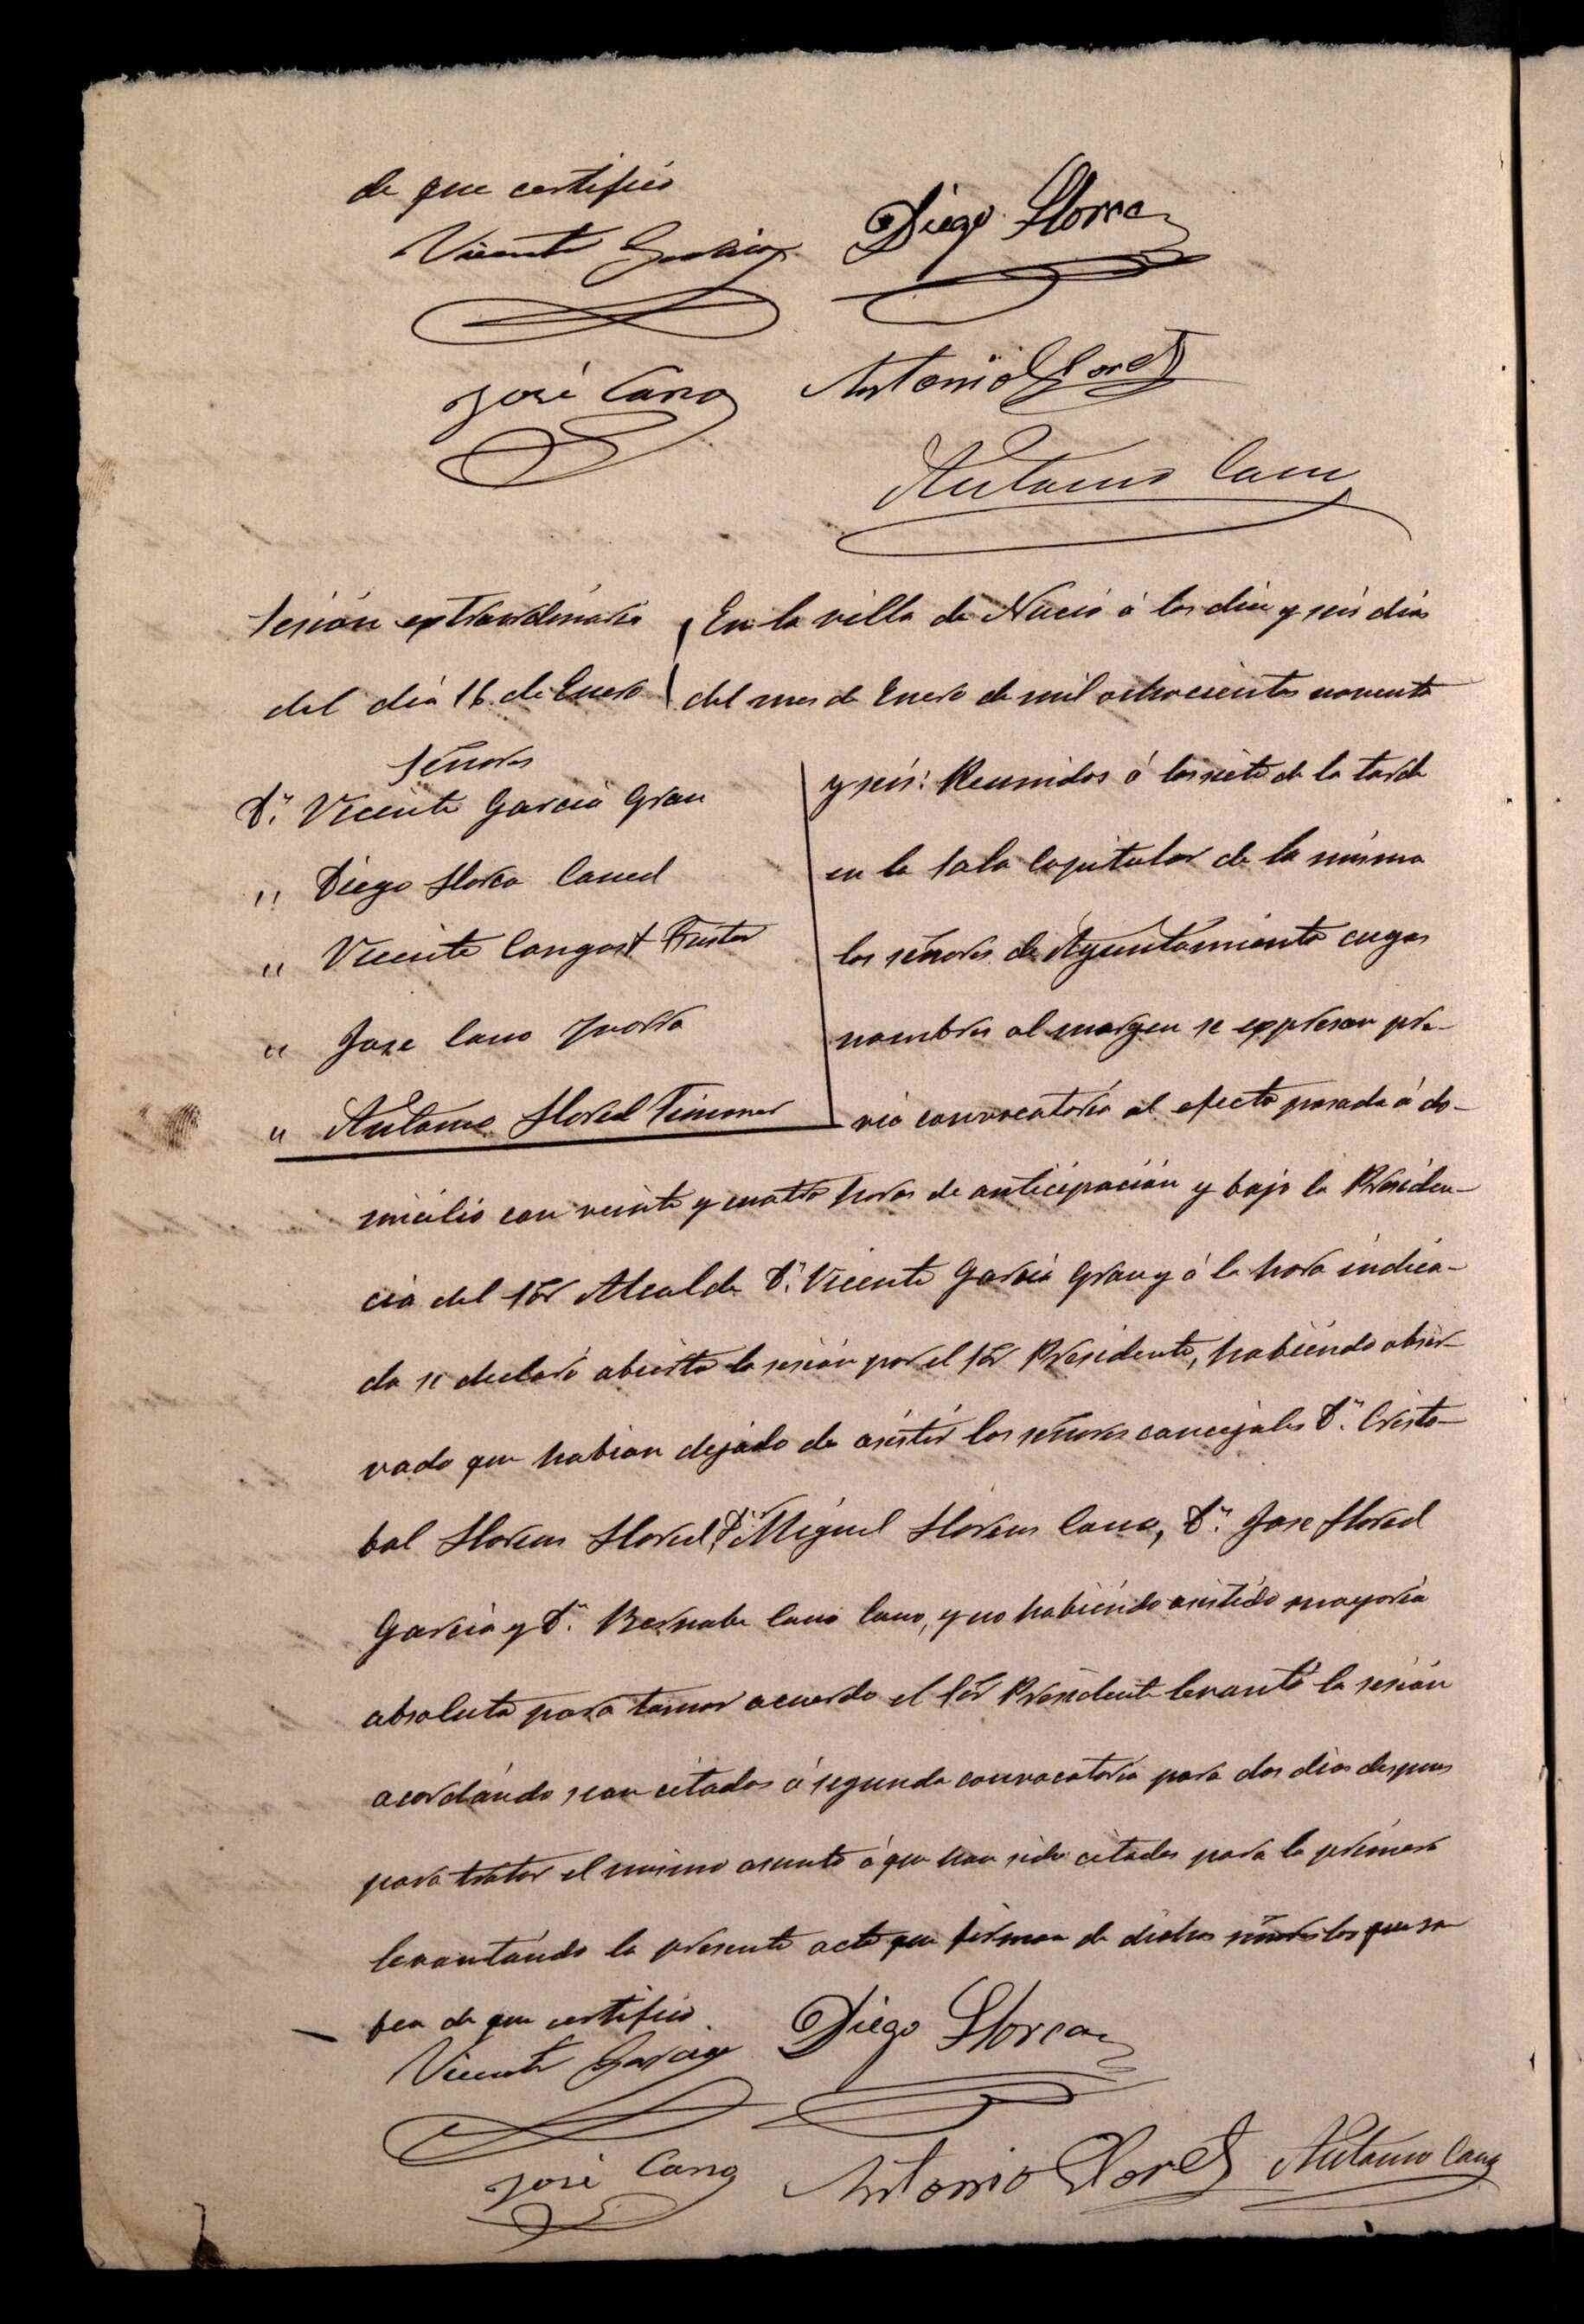 de que certifico
Vicente Garcia Diego Llorca
José Cano Antonio Lloret
Antonio Cano
Sesión extraordinaria
del dia 16 de Enero
Señores
Dn. Vicente Garcia Grau
" Diego Llorca Lloret
" Vicente Langost Fuster
" Jose Cano Yvorra
" Antonio Lloret Timoner
En la villa de Nucia á los diez y seis dias
del mes de Enero de mil ochocientos noventa
y seis: Reunidos á las siete de la tarde
en la Sala Capitular de la misma
los señores de Ayuntamiento cuyos
nombres al margen se expresan pre-
via convocatoria al efecto pasada á do-
micilio con veinte y cuatro horas de anticipación y bajo la Presiden-
cia del Sõr Alcalde Dn. Vicente Garcia Grau y á la hora indica-
da se declaró abierta la sesión por el Sõr Presidente, habiendo obser-
vado que habian dejado de asistir los señores concejales Dn. Cristo-
bal Llorens Lloret, Dn. Miguel Llorens Cano, Dn. Jose Lloret
Garcia y Dn. Bernabe Cano Cano, y no habiendo asistido mayoria
absoluta para tomar acuerdo el Sõr Presidente levantó la sesión
acordando sean citados á segunda convocatoria para dos dias despues
para tratar el mismo asunto á que han sido citados para la primera
levantando la presente acta que firman de dichos señores los que sa-
ben de que certifico.
Vicente Garcia Diego Llorca
José Cano Antonio Lloret Antonio Cano